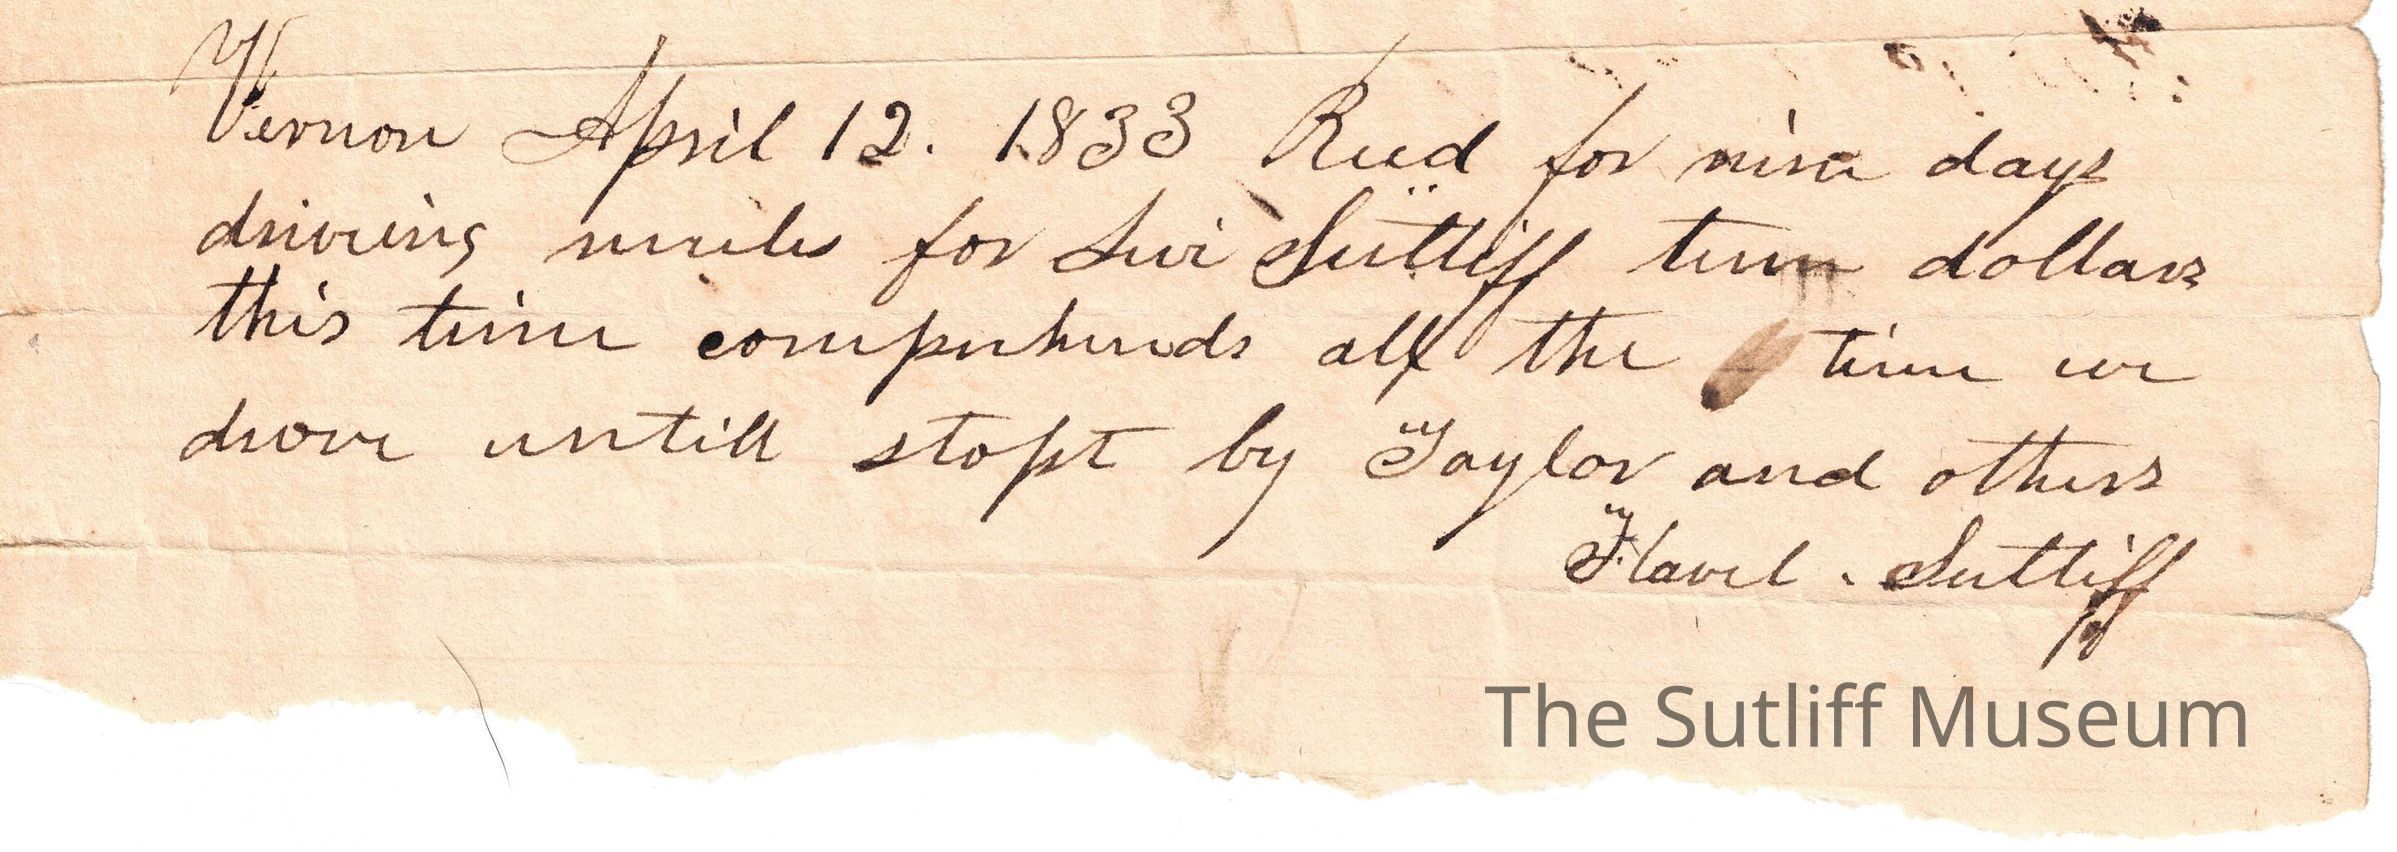 Vernon April 12. 1833 Reed for nine days
driving mules for Levi Sutliff tenn dollars
this time comprehends all the time we
drove untill stopt by Taylor and others
Flavel. Sutliff
The Sutliff Museum